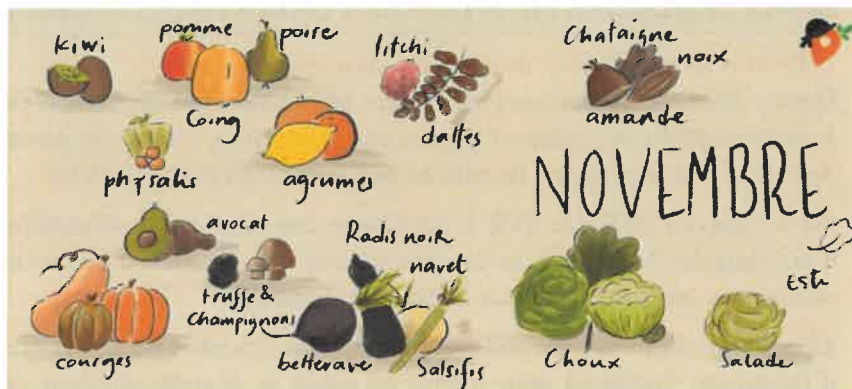 kiwi
pomme
poire
litchi
Chataigne
noix
Coing
dattes
amande
physalis
agrumes
NOVEMBRE
avocat
Radis noir
navet
truffe &
Champignons
Esti
courges
betterave
Salsifis
Choux
Salade